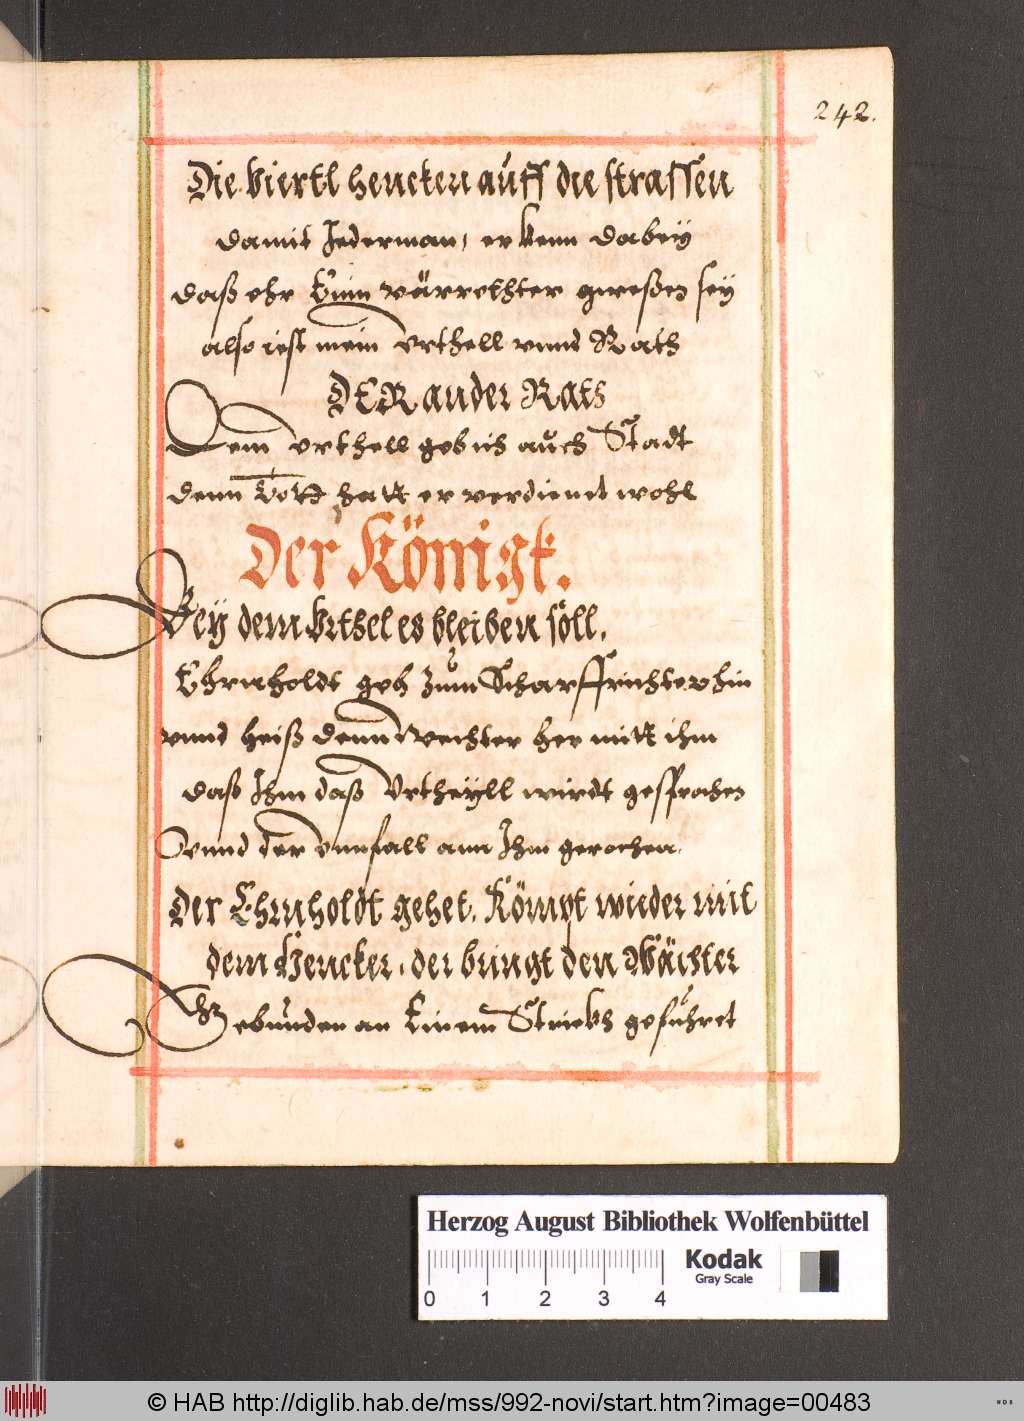 242.
Die Viertl hencken auff die strassen
damit Jederman, erkenn dabey
daß ehr Einn värrethter gweßen sey
also iest mein Vrthell vnnd Rath
DER ander Rats
Dem Vrthell geb ich auch Stadt
denn Todt hatt er verdienet wohl
Der Königk.
Bey dem Vrthel es bleiben soll.
Ehrnholdt geh zum Scharffrichter hin
vnnd heiß denn Wechter her mitt ihm
daß Ihm daß Vrtheyll wirdt gesprochen
vnnd der vnnfall ann Ihm gerochen.
Der Ehrnholdt gehet. Kömpt wieder mit
dem Hencker, der bringt den Wächter
Gebunden an Einem Strickh geführet
Herzog August Bibliothek Wolfenbüttel
Kodak
Gray Scale
0 1 2 3 4
© HAB http://diglib.hab.de/mss/992-novi/start.htm?image=00483